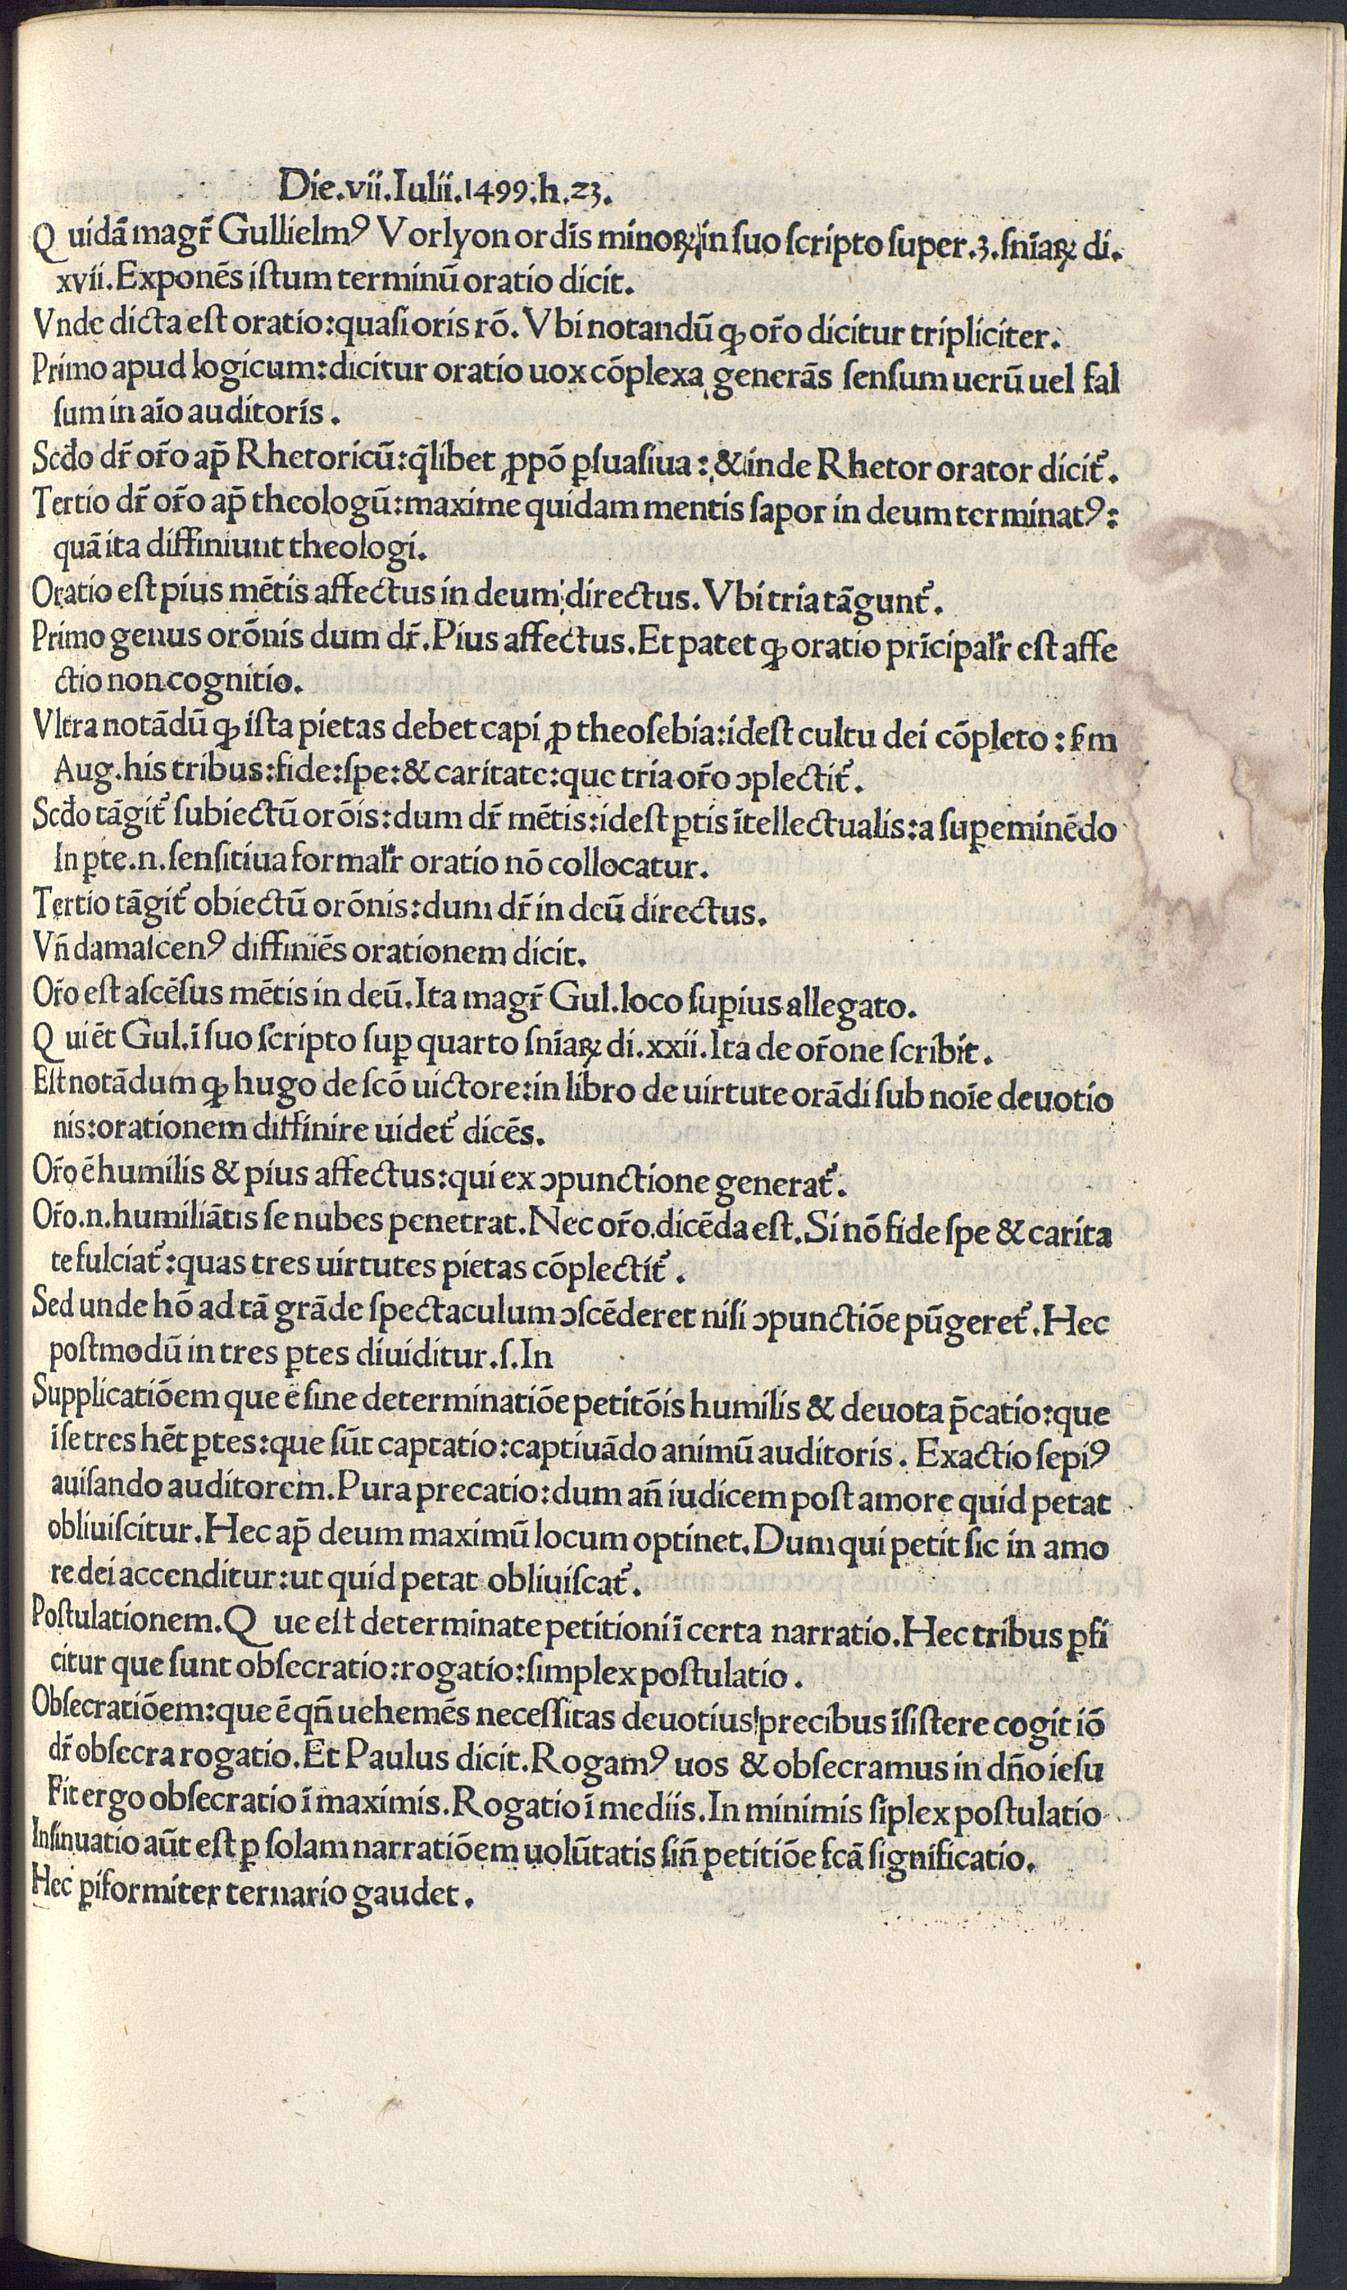 Die.vii.Iulii.1499.h.23.
Q uidā magr̄ Gullielmꝰ Vorlyon ordīs minoꝝ in ſuo ſcripto ſuper.3.ſnīaꝝ di.
xvii.Exponēs iſtum terminū oratio dicit.
Vnde dicta eſt oratio:quaſi oris rō. Vbi notandū ꝙ or̄o dicitur tripliciter.
Primo apud logicum:dicitur oratio uox cōplexa generās ſenſum uerū uel fal
ſum in aīo auditoris.
Scd̄o dr̄ or̄o ap̄ Rhetoricū:q̄libet ꝓpō ꝑſuaſiua:&inde Rhetor orator dicit᷑.
Tertio dr̄ or̄o ap̄ theologū:maxime quidam mentis ſapor in deum terminatꝰ:
quā ita diffiniunt theologi.
Oratio eſt pius mētis affectus in deum directus. Vbi tria tāgunt᷑.
Primo genus orōnis dum dr̄.Pius affectus.Et patet ꝙ oratio prīcipalr̄ eſt affe
ctio non cognitio.
Vltra notādū ꝙ iſta pietas debet capi ꝓ theoſebia:ideſt cultu dei cōpleto:ẜm
Aug.his tribus:fide:ſpe:& caritate:que tria or̄o ↄplectit᷑.
Scd̄o tāgit᷑ ſubiectū orōis:dum dr̄ mētis:ideſt ꝑtis ītellectualis:a ſuꝑeminēdo
In ꝑte.n.ſenſitiua formalr̄ oratio nō collocatur.
Tertio tāgit᷑ obiectū orōnis:dum dr̄ in deū directus.
Vn̄ damaſcenꝰ diffiniēs orationem dicit.
Or̄o eſt aſcēſus mētis in deū.Ita magr̄ Gul.loco ſuꝑius allegato.
Q ui ēt Gul.ī ſuo ſcripto ſuꝑ quarto ſnīaꝝ di.xxii.Ita de or̄one ſcribit.
Eſt notādum ꝙ hugo de ſcō uictore:in libro de uirtute orādi ſub noīe deuotio
nis:orationem diffinire uidet᷑ dicēs.
Or̄o ē humilis & pius affectus:qui ex ↄpunctione generat᷑.
Or̄o.n.humiliātis ſe nubes penetrat.Nec or̄o.dicēda eſt.Si nō fide ſpe & carita
te fulciat᷑:quas tres uirtutes pietas cōplectit᷑.
Sed unde hō ad tā grāde ſpectaculum ↄſcēderet niſi ↄpunctiōe pūgeret᷑.Hec
poſtmodū in tres ꝑtes diuiditur.ſ.In
Supplicatiōem que ē ſine determinatiōe petitōis humilis & deuota p̄catio:que
ī ſe tres hēt ꝑtes:que ſūt captatio:captiuādo animū auditoris. Exactio ſepiꝰ
auiſando auditorem.Pura precatio:dum an̄ iudicem poſt amore quid petat
obliuiſcitur.Hec ap̄ deum maximū locum optinet.Dum qui petit ſic in amo
re dei accenditur:ut quid petat obliuiſcat᷑.
Poſtulationem.Q ue eſt determinate petitioni ī certa narratio.Hec tribus ꝑfi
citur que ſunt obſecratio:rogatio:ſimplex poſtulatio.
Obſecratiōem:que ē qn̄ uehemēs neceſſitas deuotius precibus īſiſtere cogit iō
dr̄ obſecra rogatio.Et Paulus dicit.Rogamꝰ uos & obſecramus in dn̄o ieſu
Fit ergo obſecratio ī maximis.Rogatio ī mediis.In minimis ſīplex poſtulatio
Inſinuatio aūt eſt ꝑ ſolam narratiōem uolūtatis ſin̄ petitiōe fcā ſignificatio.
Hec ꝑiformiter ternario gaudet.